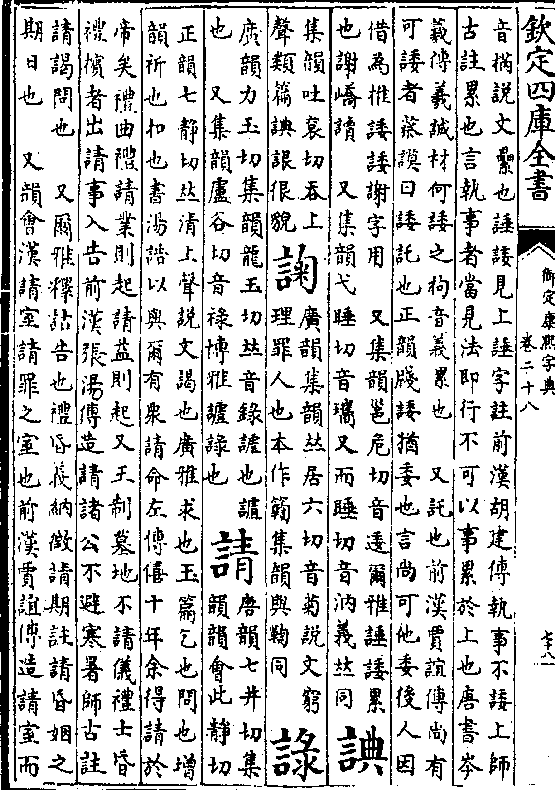 欽定四庫全書
御定康熙字典
卷二十八
七十八
音橢說文纍也諈諉見上諈字註前漢胡建傳執事不諉上師
古註累也言執事者當見法即行不可以事累於上也唐書岑
羲傳羲誠材何諉之拘音義累也　又託也前漢賈誼傳尚有
可諉者蔡謨曰諉託也正韻牋諉猶委也言尚可他委後人因
借為推諉諉謝字用　又集韻邕危切音逶爾雅諈諉累
也謝嶠讀　又集韻弋睡切音瓗又而睡切音汭義𠀤同
集韻吐袞切吞上
聲類篇詪很貌
諊
廣韻集韻𠀤居六切音菊說文窮
理罪人也本作集韻與鞫同
廣韻力玉切集韻龍玉切𠀤音錄謯也謯
也　又集韻盧谷切音祿博雅謯也
請
唐韻七井切集
韻韻會此靜切
正韻七靜切𠀤清上聲說文謁也廣雅求也玉篇乞也問也增
韻祈也扣也書湯誥以與爾有衆請命左傳僖十年余得請於
帝矣禮曲禮請業則起請益則起又王制墓地不請儀禮士昏
禮擯者出請事入告前漢張湯傳造請諸公不避寒暑師古註
請謁問也　又爾雅釋詁告也禮昏義納徵請期註請昏姻之
期日也　又韻會漢請室請罪之室也前漢賈誼傳造請室而